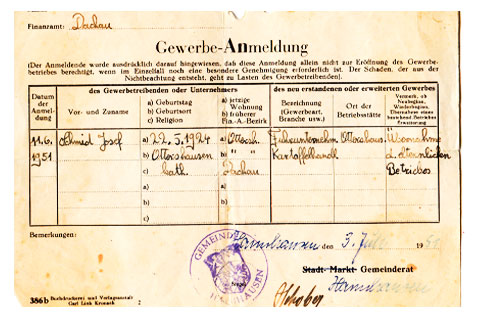 Finanzamt: Dachau
Gewerbe-Anmeldung
(Der Anmeldende wurde ausdrücklich darauf hingewiesen, daß diese Anmeldung allein nicht zur Eröffnung des Gewerbe-
betriebes berechtigt, wenn im Einzelfall noch eine besondere Genehmigung erforderlich ist. Der Schaden, der aus der
Nichtbeachtung entsteht, geht zu Lasten des Gewerbetreibenden).
Datum
der
Anmel-
dung
des Gewerbetreibenden oder Unternehmers
Vor- und Zuname
a) Geburtstag
b) Geburtsort
c) Religion
a) jetzige
Wohnung
b) früher
Fin.-A.-Bezirk
des neu erstandenen oder erweiterten Gewerbes
Bezeichnung
(Gewerbeart,
Branche usw.)
Ort der
Betriebstätte
Vermerk, ob
Neubeginn,
Wiederbeginn,
Übernahme eines
bestehend. Betriebes
Erweiterung
11.6. Schmid Josef a) 22.5.1924 a) Ottersh. Fuhrunternehm. Ottershaus. Übernahme
1951 b) Ottershausen b) " " Kartoffelhandl. d. elternlichen
c) kath. Dachau Betriebes
a) a)
b) b)
c)
Bemerkungen: Haimhausen den 3. Juli 19
GEMEINDE HAIMHAUSEN
Siegel
Stadt- Markt- Gemeinderat
Haimhausen
386b Buchdruckerei und Verlagsanstalt
Carl Link Kronach 2